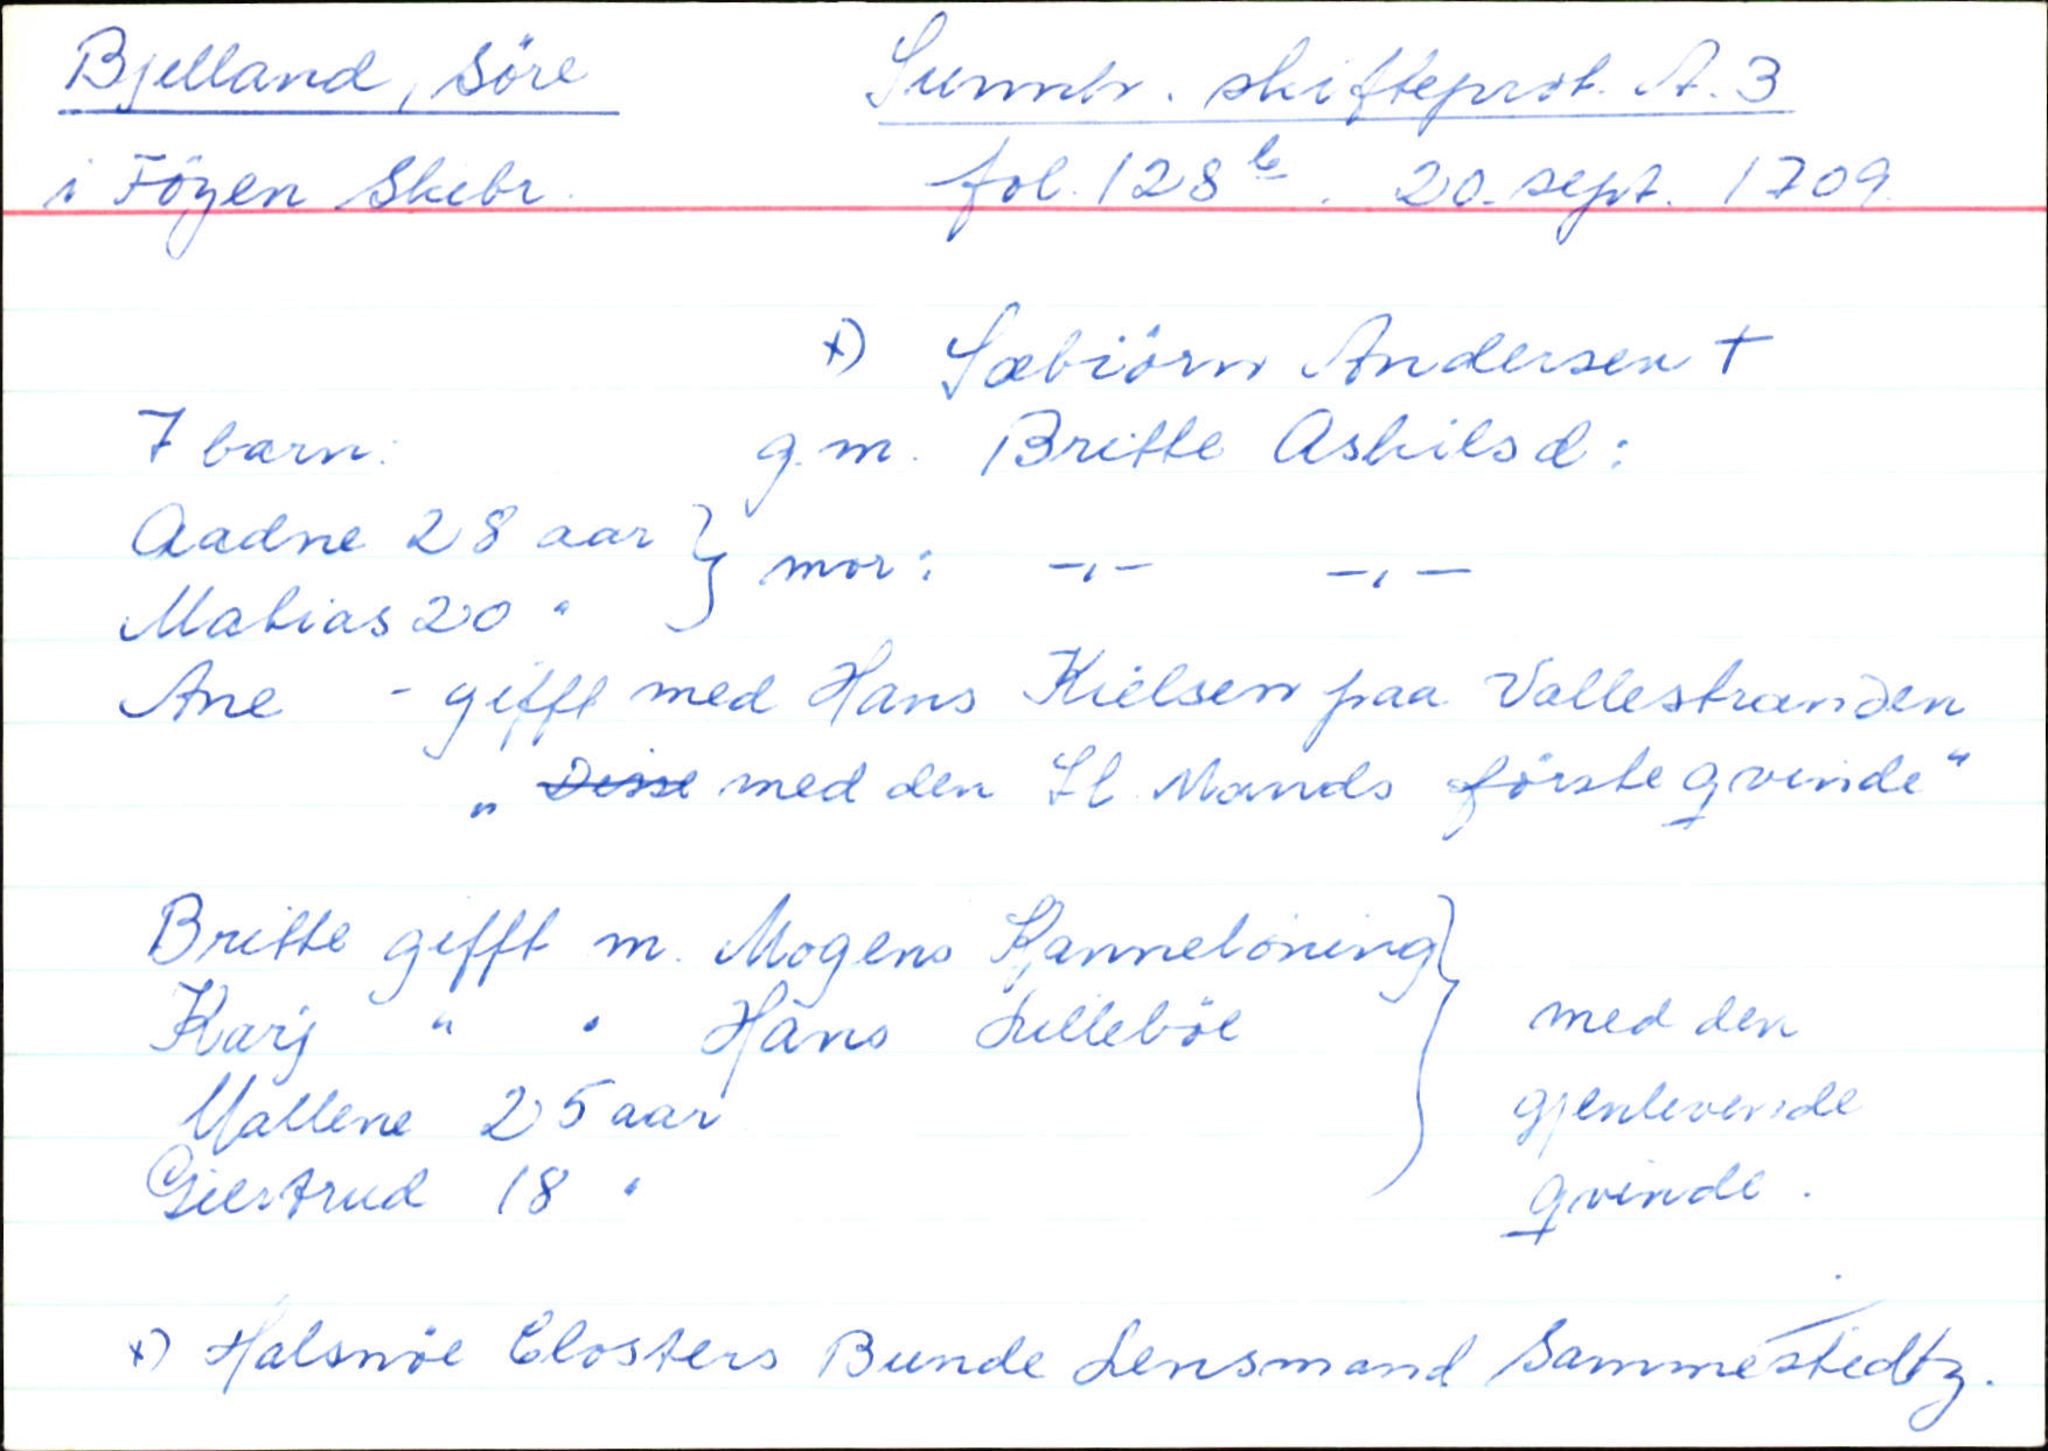 Bjelland, Söre
Sunnh. skifteprot. A. 3
i Föyen Skibr.
fol. 128 b. 20. sept. 1709.
x) Sæbiörn Andersen +
7 barn:
g.m. Britte Askilsd:
Aadne 28 aar } mor: -,- -,-
Matias 20 "
Ane - gifft med Hans Kielsen paa Vallestranden
„ Disse med den Sl. Mands förste qvinde"
Britte gifft m. Mogens
Karj " " Hans Lilleböe
med den
Mallene 25 aar
gjenlevende
Giertrud 18 "
qvinde.
x) Halsnöe Closters Bunde Lensmand Sammestedtz.